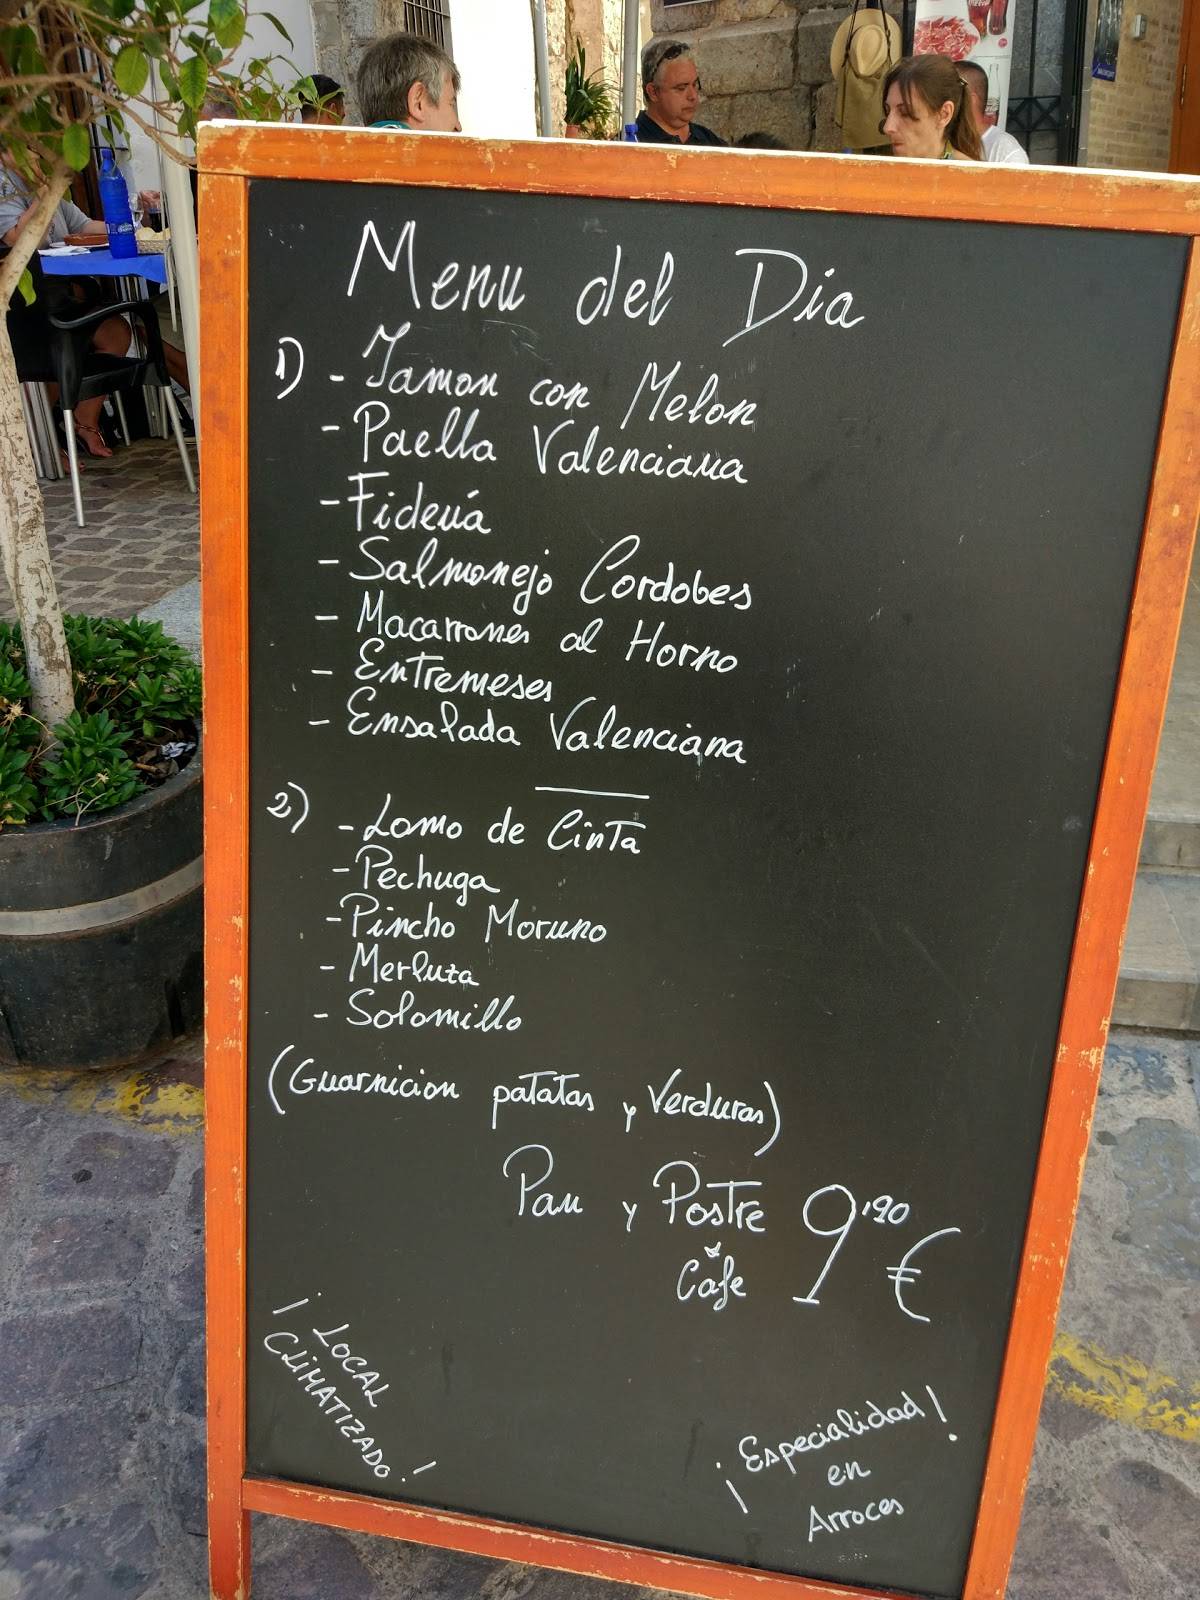 Menu del Dia
1) - Jamon con Melon
- Paella Valenciana
- Fideuá
- Salmonejo Cordobes
- Macarrones al Horno
- Entremeses
- Ensalada Valenciana
2) - Lomo de Cinta
- Pechuga
- Pincho Moruno
- Merluza
- Solomillo
(Guarnicion patatas y Verduras)
Pan y Postre 9'90 €
Cafe
¡LOCAL
CLIMATIZADO!
¡Especialidad!
en
Arroces